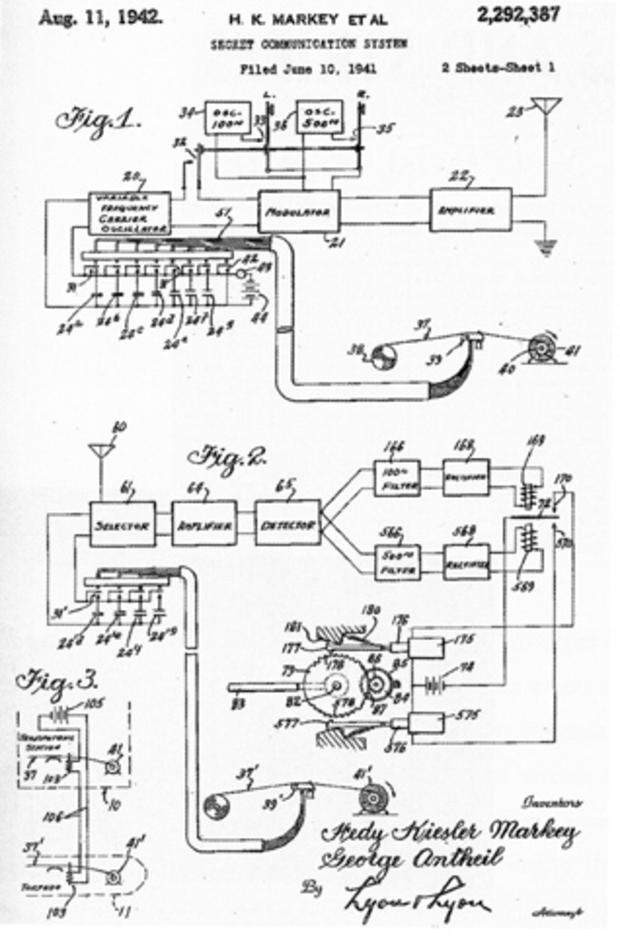 Aug. 11, 1942.
H. K. MARKEY ET AL
2,292,387
SECRET COMMUNICATION SYSTEM
Filed June 10, 1941
2 Sheets-Sheet 1
Fig.1.
34
OSC.
100~
L.
33
36
OSC.
500~
R.
35
23
32
20
VARIABLE
FREQUENCY
CARRIER
OSCILLATOR
MODULATOR
21
22
AMPLIFIER
42
44
24a
24b
24c
24d
24e
24f
24g
37
38
39
40
41
Fig.2.
60
61
SELECTOR
64
AMPLIFIER
65
DETECTOR
166
100~
FILTER
168
RECTIFIER
169
170
566
500~
FILTER
568
RECTIFIER
569
570
24d
24e
24f
24g
180
181
177
176
175
79
178
86
85
84
87
83
82
578
78
577
576
575
Fig.3.
105
STATION
37
41
10
106
37'
41'
TORPEDO
103
11
37'
39'
41'
Inventors
Hedy Kiesler Markey
George Antheil
By
Lyon & Lyon
Attorneys